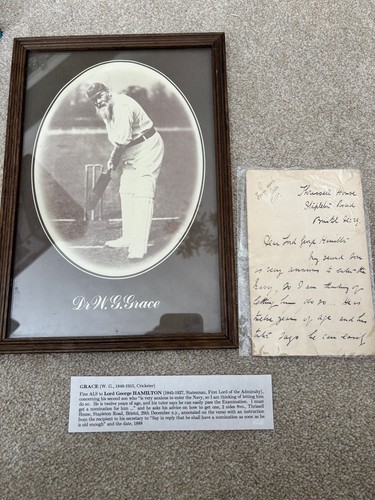 Dr W. G. Grace
Thrissell House
Stapleton Road
Bristol
Dear Lord George Hamilton
My second son
is very anxious to enter the
Navy, so I am thinking of
letting him do so. He is
twelve years of age and his
tutor says he can easily
GRACE (W. G., 1848-1915, Cricketer)
Fine ALS to Lord George HAMILTON (1845-1927, Statesman, First Lord of the Admiralty),
concerning his second son who "is very anxious to enter the Navy, so I am thinking of letting him
do so. He is twelve years of age, and his tutor says he can easily pass the Examination. I must
get a nomination for him ..." and he asks his advice on how to get one, 2 sides 8vo., Thrissell
House, Stapleton Road, Bristol, 29th December n.y., annotated on the verso with an instruction
from the recipient to his secretary to "Say in reply that he shall have a nomination as soon as he
is old enough" and the date, 1888